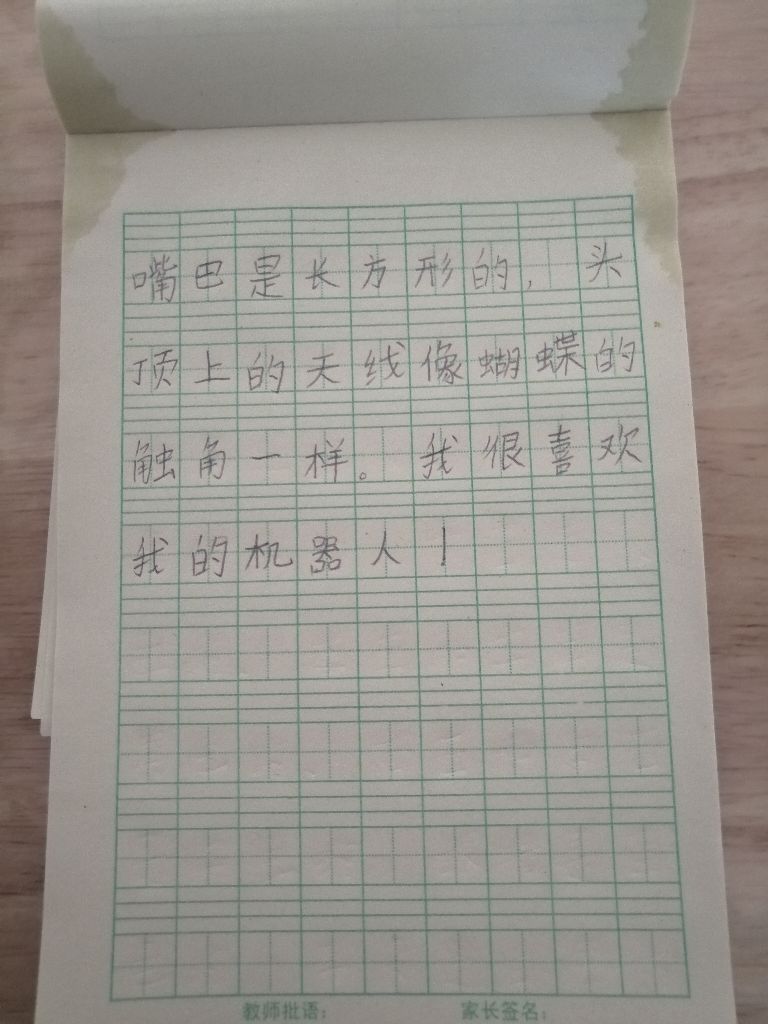 嘴巴是长方形的，头
顶上的天线像蝴蝶的
触角一样。我很喜欢
我的机器人！
教师批语： 家长签名：